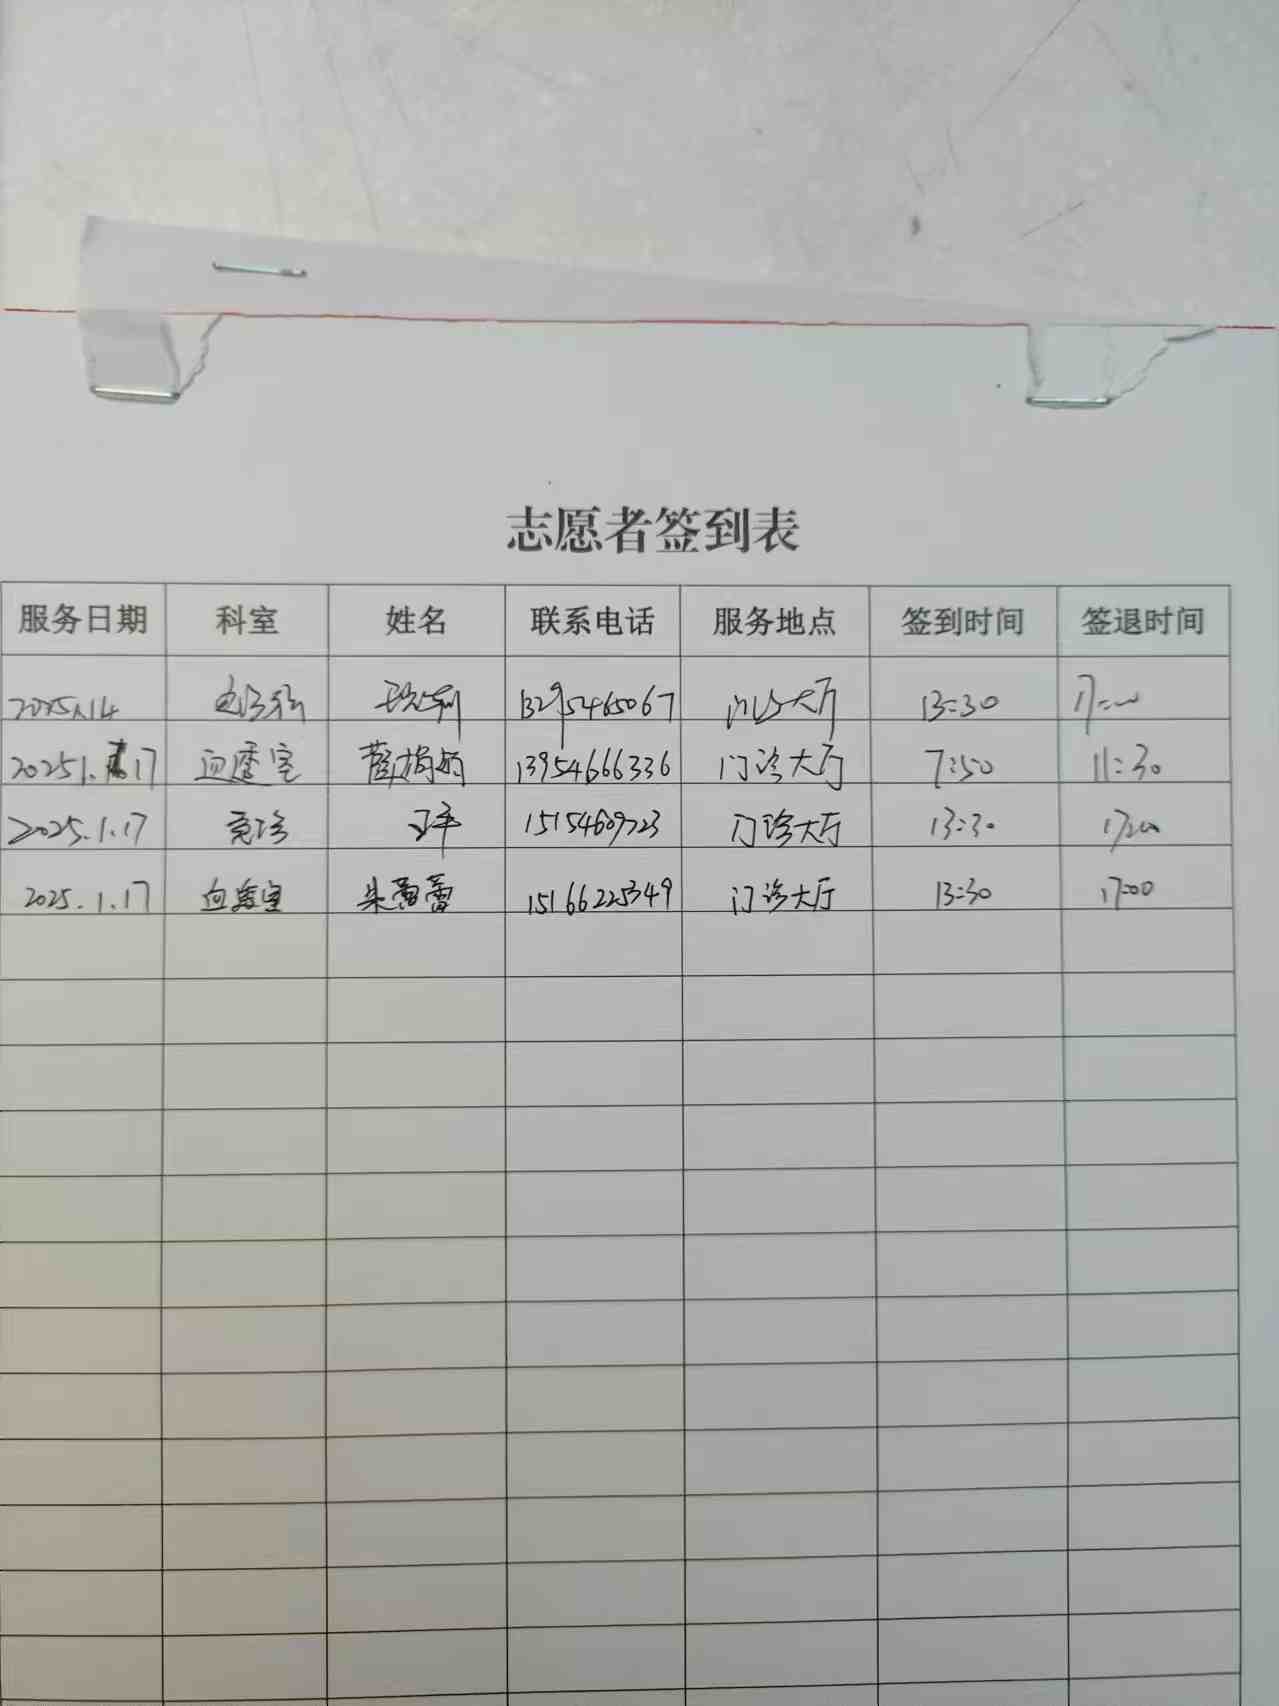 志愿者签到表
服务日期 科室 姓名 联系电话 服务地点 签到时间 签退时间
2025.1.14 13295465067 门诊大厅 13:30 17:00
2025.1.17 血透室 13954666336 门诊大厅 7:50 11:30
2025.1.17 门诊大厅 13:30 17:00
2025.1.17 血透室 朱蕾蕾 15166225349 门诊大厅 13:30 17:00